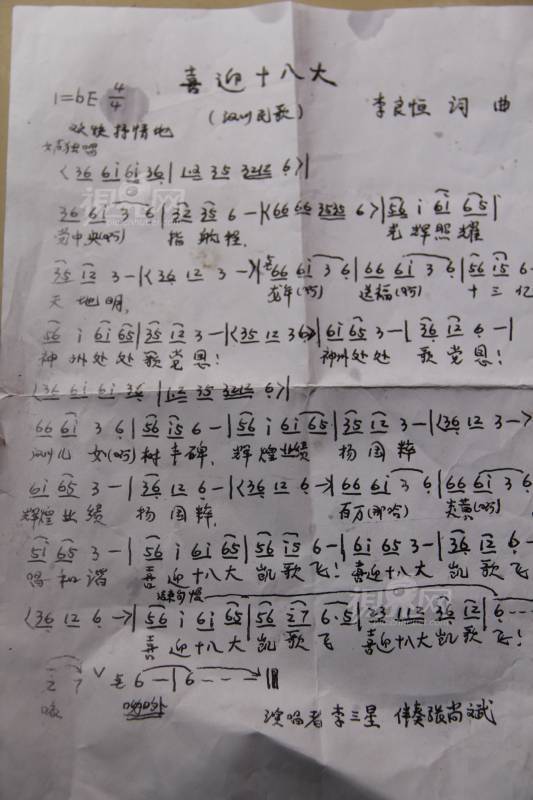 喜迎十八大
1=bE 4/4
(汉川民歌) 李良恒 词 曲
欢快抒情地
女高独唱
<36 6i 6i 36 | 1·2 35 3212 6>|
36 6i 3 6 | 32 35 6 - |<66 66 3535 6>| 56 i 6i 65 |
党中央(啊) 指航程, 光辉照耀
35 12 3 - |<36 12 3 -> | 66 6i 3 6 | 66 6i 3 6 | 56 i5 6 -
天地明, 龙年(啊) 送福(啊) 十三亿
56 i 6i 65 | 35 12 3 - |<35 12 36>| 6i 65 3 - | 36 12 6 - |
神州处处歌党恩! 神州处处 歌党恩!
<36 6i 6i 36 | 1·2 35 3212 6>|
66 6i 3 6 | 56 i5 6 - | 56 i 6i 65 | 35 12 3 - |<36 12 3 ->
汉川儿女(啊)树丰碑, 辉煌业绩 扬国粹
6i 65 3 - | 36 12 6 - |<36 12 6 ->| 66 6i 3 6 | 66 6i 3 6
辉煌业绩 扬国粹, 百万(那哈) 炎黄(啊)
5i 65 3 - | 56 i 6i 65 | 56 i5 6 - | 6i 65 3 - | 36 12 6 -
唱和谐 喜迎十八大 凯歌飞! 喜迎十八大 凯歌飞
结束句慢
<36 12 6 ->| 56 i 6i 65 | 56 27 6·5 | 23 112 36 12 | 6 - - -
喜迎十八大 凯歌飞 喜迎十八大凯歌飞!
2 7 V 6 - | 6 - - - ||
咳
演唱者 李三星 伴奏张尚斌